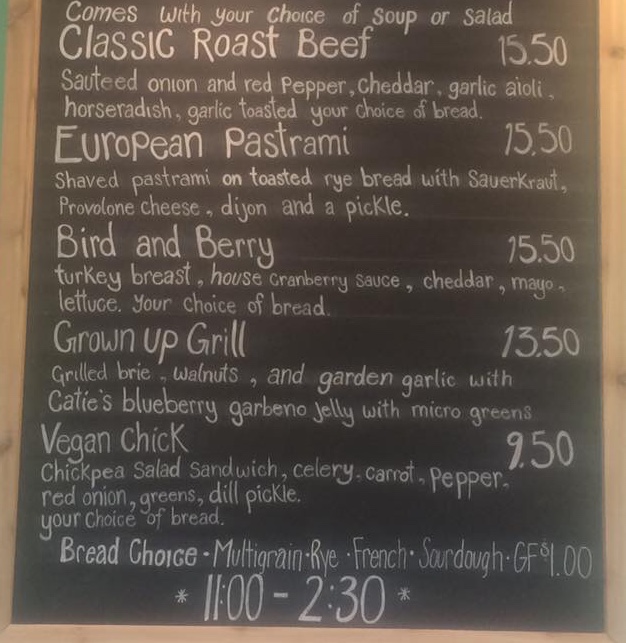 Comes with your choice of soup or salad
Classic Roast Beef 15.50
Sauteed onion and red Pepper, cheddar, garlic aioli,
horseradish, garlic toasted your choice of bread.
European Pastrami 15.50
Shaved pastrami on toasted rye bread with SauerKraut,
Provolone cheese, dijon and a pickle.
Bird and Berry 15.50
turkey breast, house cranberry sauce, cheddar, mayo,
lettuce. your choice of bread.
Grown up Grill 13.50
Grilled brie, walnuts, and garden garlic with
Catie's blueberry garbeno jelly with micro greens
Vegan Chick 9.50
Chickpea Salad Sandwich, celery, carrot, pepper,
red onion, greens, dill pickle.
your choice of bread.
Bread Choice - Multigrain · Rye · French · Sourdough · GF $1.00
* 11:00 - 2:30 *